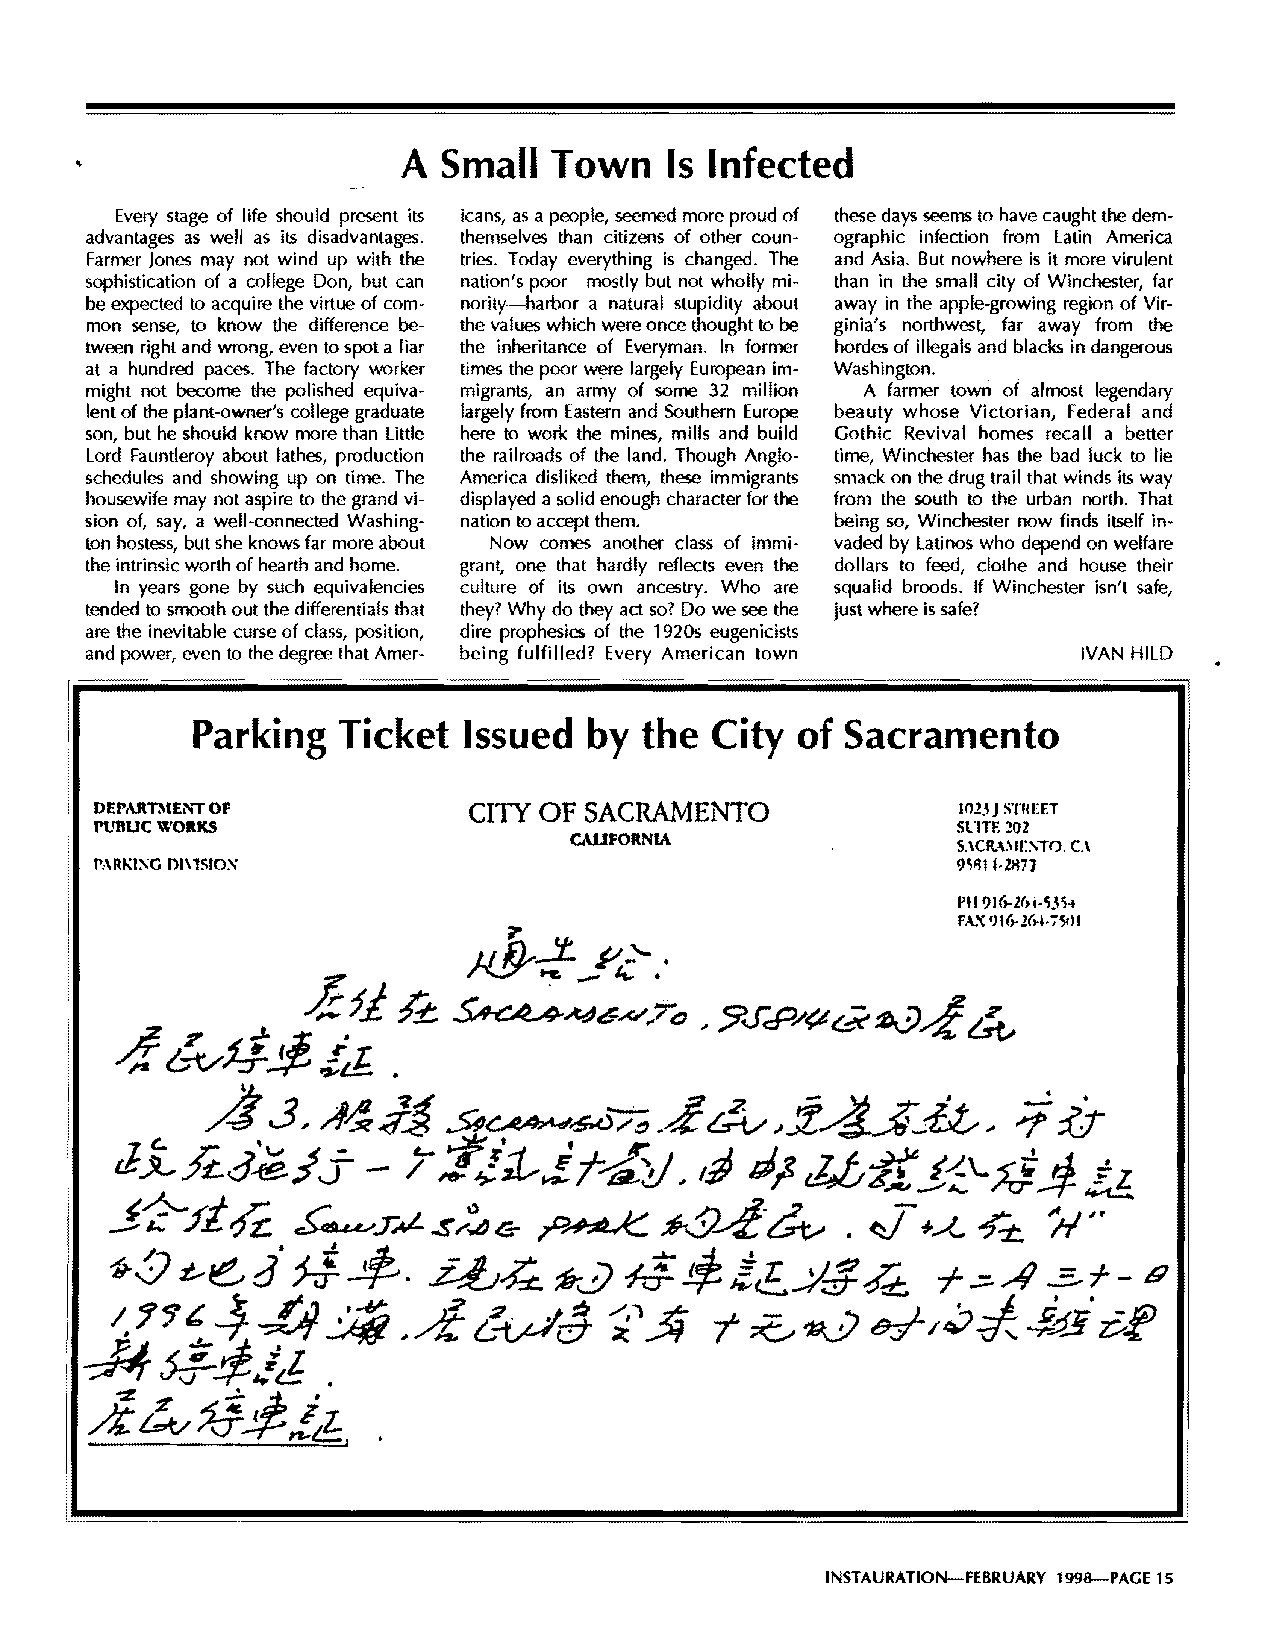 A Small Town Is Infected
Every stage of life should present its
advantages as well as its disadvantages.
Farmer Jones may not wind up with the
sophistication of a college Don, but can
be expected to acquire the virtue of com-
mon sense, to know the difference be-
tween right and wrong, even to spot a liar
at a hundred paces. The factory worker
might not become the polished equiva-
lent of the plant-owner's college graduate
son, but he should know more than Little
Lord Fauntleroy about lathes, production
schedules and showing up on time. The
housewife may not aspire to the grand vi-
sion of, say, a well-connected Washing-
ton hostess, but she knows far more about
the intrinsic worth of hearth and home.
In years gone by such equivalencies
tended to smooth out the differentials that
are the inevitable curse of class, position,
and power, even to the degree that Amer-
icans, as a people, seemed more proud of
themselves than citizens of other coun-
tries. Today everything is changed. The
nation's poor mostly but not wholly mi-
nority—harbor a natural stupidity about
the values which were once thought to be
the inheritance of Everyman. In former
times the poor were largely European im-
migrants, an army of some 32 million
largely from Eastern and Southern Europe
here to work the mines, mills and build
the railroads of the land. Though Anglo-
America disliked them, these immigrants
displayed a solid enough character for the
nation to accept them.
Now comes another class of immi-
grant, one that hardly reflects even the
culture of its own ancestry. Who are
they? Why do they act so? Do we see the
dire prophesies of the 1920s eugenicists
being fulfilled? Every American town
these days seems to have caught the dem-
ographic infection from Latin America
and Asia. But nowhere is it more virulent
than in the small city of Winchester, far
away in the apple-growing region of Vir-
ginia's northwest, far away from the
hordes of illegals and blacks in dangerous
Washington.
A farmer town of almost legendary
beauty whose Victorian, Federal and
Gothic Revival homes recall a better
time, Winchester has the bad luck to lie
smack on the drug trail that winds its way
from the south to the urban north. That
being so, Winchester now finds itself in-
vaded by Latinos who depend on welfare
dollars to feed, clothe and house their
squalid broods. If Winchester isn't safe,
just where is safe?
IVAN HILD
Parking Ticket Issued by the City of Sacramento
DEPARTMENT OF
PUBLIC WORKS
PARKING DIVISION
CITY OF SACRAMENTO
CALIFORNIA
1023 J STREET
SUITE 202
SACRAMENTO, CA
95814-2877
PH 916-264-5354
FAX 916-264-7501
通告给:
居住在 SACRAMENTO, 95814区的居民
居民停車証.
為3.服務 SACRAMENTO 居民,更為有效, 市討
政在施行一个嘗試計劃,由邮政發给停車証
给住在 SOUTH SIDE PARK 的居民. 可以在 "H"
的地方停車. 现在的停車証将在 十二月三十一日
1996年期滿. 居民将会有十天的时间来辦理
新停車証.
居民停車証.
INSTAURATION—FEBRUARY 1998—PAGE 15